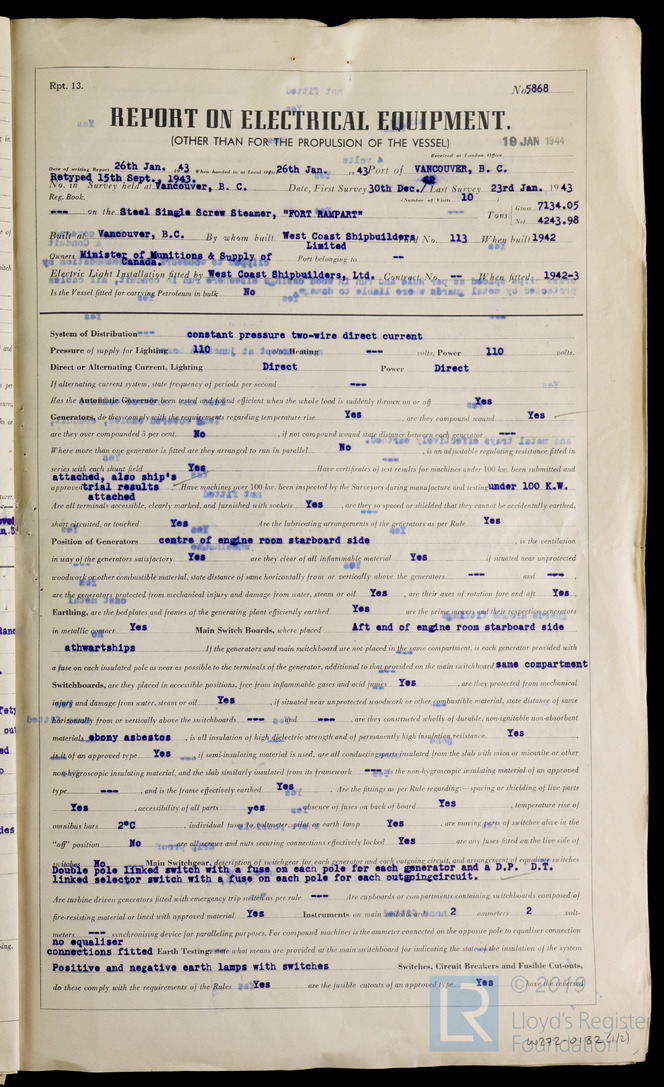 Rpt. 13.
No 5868
REPORT ON ELECTRICAL EQUIPMENT.
(OTHER THAN FOR THE PROPULSION OF THE VESSEL)
19 JAN 1944
Received at London Office
Date of writing Report 26th Jan. 1943 When handed in at Local Office 26th Jan. 1943 Port of VANCOUVER, B. C.
Retyped 15th Sept., 1943.
No. in Survey held at Vancouver, B. C. Date, First Survey 30th Dec./42 Last Survey 23rd Jan. 1943
Reg. Book. (Number of Visits 10
--- on the Steel Single Screw Steamer, "FORT RAMPART" Tons Gross 7134.05
Net 4243.98
Built at Vancouver, B.C. By whom built West Coast Shipbuilders Limited Yard No. 113 When built 1942
Owners Minister of Munitions & Supply of Canada. Port belonging to --
Electric Light Installation fitted by West Coast Shipbuilders, Ltd. Contract No. -- When fitted 1942-3
Is the Vessel fitted for carrying Petroleum in bulk No
System of Distribution --- constant pressure two-wire direct current
Pressure of supply for Lighting 110 volts, Heating --- volts, Power 110 volts.
Direct or Alternating Current, Lighting Direct Power Direct
If alternating current system, state frequency of periods per second ---
Has the Automatic Governor been tested and found efficient when the whole load is suddenly thrown on or off Yes
Generators, do they comply with the requirements regarding temperature rise Yes are they compound wound Yes
are they over compounded 5 per cent. No , if not compound wound state distance between each generator ---
Where more than one generator is fitted are they arranged to run in parallel No , is an adjustable regulating resistance fitted in
series with each shunt field Yes Have certificates of test results for machines under 100 kw. been submitted and
attached, also ship's
approved trial results Have machines over 100 kw. been inspected by the Surveyors during manufacture and testing under 100 K.W.
attached
Are all terminals accessible, clearly marked, and furnished with sockets Yes , are they so spaced or shielded that they cannot be accidentally earthed,
short circuited, or touched Yes Are the lubricating arrangements of the generators as per Rule Yes
Position of Generators centre of engine room starboard side , is the ventilation
in way of the generators satisfactory Yes are they clear of all inflammable material Yes if situated near unprotected
woodwork or other combustible material, state distance of same horizontally from or vertically above the generators --- and --- ,
are the generators protected from mechanical injury and damage from water, steam or oil Yes , are their axes of rotation fore and aft Yes .
Earthing, are the bedplates and frames of the generating plant efficiently earthed Yes are the prime movers and their respective generators
in metallic contact Yes Main Switch Boards, where placed Aft end of engine room starboard side
athwartships If the generators and main switchboard are not placed in the same compartment, is each generator provided with
a fuse on each insulated pole as near as possible to the terminals of the generator, additional to that provided on the main switchboard same compartment
Switchboards, are they placed in accessible positions, free from inflammable gases and acid fumes Yes , are they protected from mechanical
injury and damage from water, steam or oil Yes , if situated near unprotected woodwork or other combustible material, state distance of same
horizontally from or vertically above the switchboards --- and --- , are they constructed wholly of durable, non-ignitable non-absorbent
materials ebony asbestos , is all insulation of high dielectric strength and of permanently high insulation resistance Yes ,
is it of an approved type Yes , if semi-insulating material is used, are all conducting parts insulated from the slab with mica or micanite or other
non-hygroscopic insulating material, and the slab similarly insulated from its framework --- is the non-hygroscopic insulating material of an approved
type --- , and is the frame effectively earthed Yes Are the fittings as per Rule regarding:—spacing or shielding of live parts
Yes , accessibility of all parts yes absence of fuses on back of board Yes , temperature rise of
omnibus bars 2°C , individual fuses to voltmeter, pilot or earth lamp Yes , are moving parts of switches alive in the
"off" position No are all screws and nuts securing connections effectively locked Yes are any fuses fitted on the live side of
switches No Main Switchgear, description of switchgear for each generator and each outgoing circuit, and arrangement of equaliser switches
Double pole linked switch with a fuse on each pole for each generator and a D.P. D.T.
linked selector switch with a fuse on each pole for each outgoingcircuit.
Are turbine driven generators fitted with emergency trip switch as per rule --- Are cupboards or compartments containing switchboards composed of
fire-resisting material or lined with approved material Yes Instruments on main switchboard 2 ammeters 2 volt-
meters --- synchronising device for paralleling purposes. For compound machines is the ammeter connected on the opposite pole to equaliser connection
no equaliser
connections fitted Earth Testing, state what means are provided at the main switchboard for indicating the state of the insulation of the system
Positive and negative earth lamps with switches Switches, Circuit Breakers and Fusible Cut-outs,
do these comply with the requirements of the Rules Yes are the fusible cutouts of an approved type Yes have the reversed
© 2019
LR
Lloyd's Register
Foundation
W272-0132 (1/2)